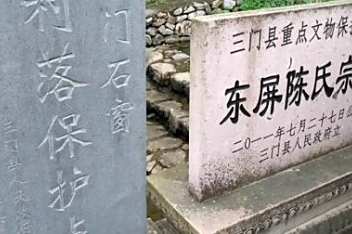 门石窗
村落保护点
三门县重点文物保护
东屏陈氏宗
二〇一一年七月二十七日公
三门县人民政府立